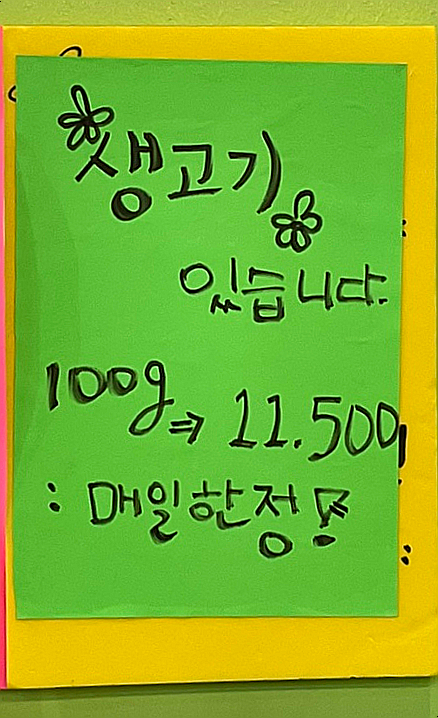 생고기
있습니다.
100g ⇒ 11.500
: 매일한정!